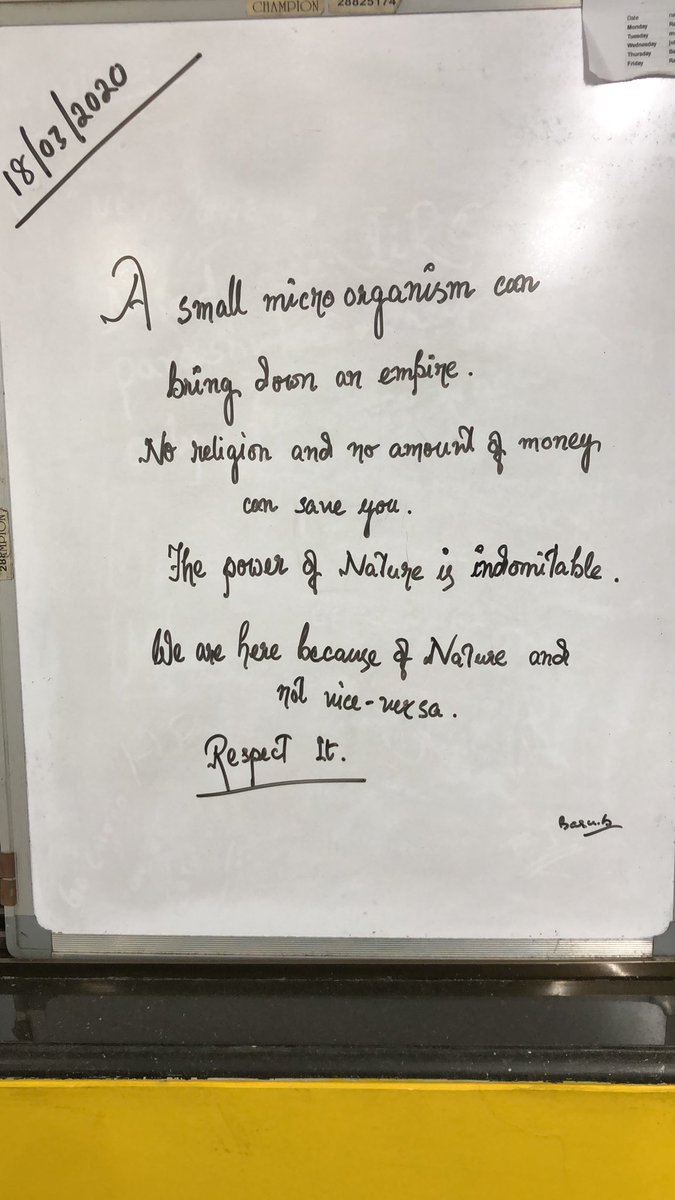 CHAMPION 28825174
Date
Monday
Tuesday
Wednesday
Thursday
Friday
18/03/2020
A small micro organism can
bring down an empire.
No religion and no amount of money
can save you.
The power of Nature is indomitable.
We are here because of Nature and
not vice-versa.
Respect It.